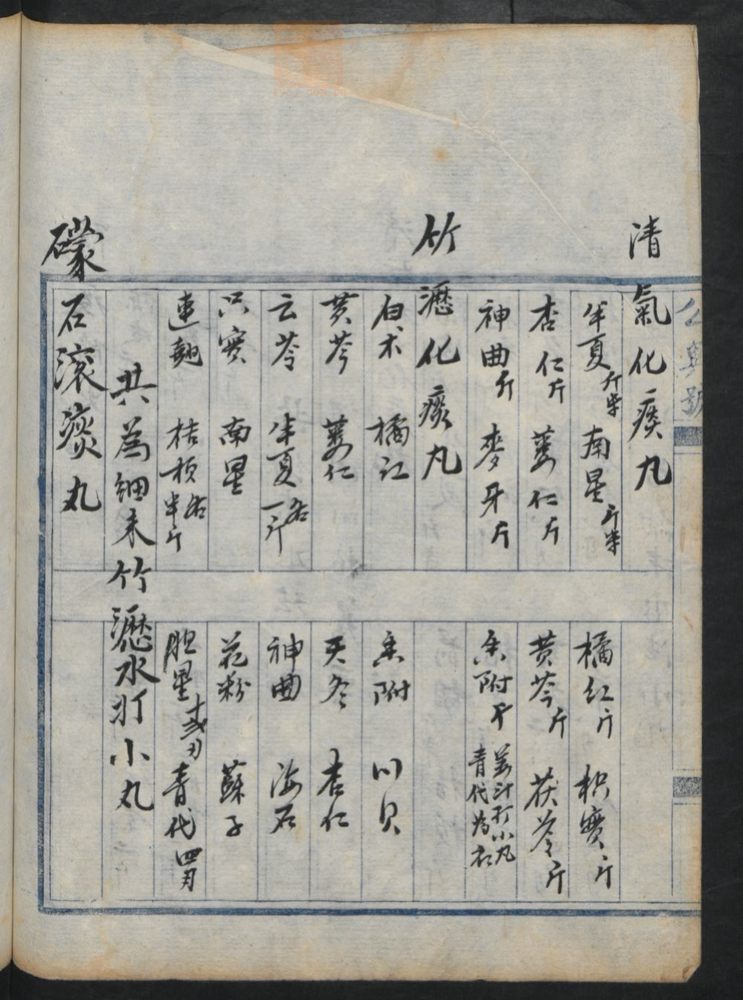 清氣化痰丸
半夏斤半 南星斤半 橘紅斤 枳實斤
杏仁斤 蔞仁斤 黄芩斤 茯苓斤
神曲斤 麥牙斤 香附斤 姜汁打小丸 青代为衣
竹瀝化痰丸
白术 橘红 香附 川贝
黄芩 蔞仁 天冬 杏仁
云苓 半夏 各一斤 神曲 海石
只实 南星 花粉 蘇子
連翹 桔梗 各半斤 胆星 青代四刄
共為細末竹瀝水打小丸
礞石滚痰丸